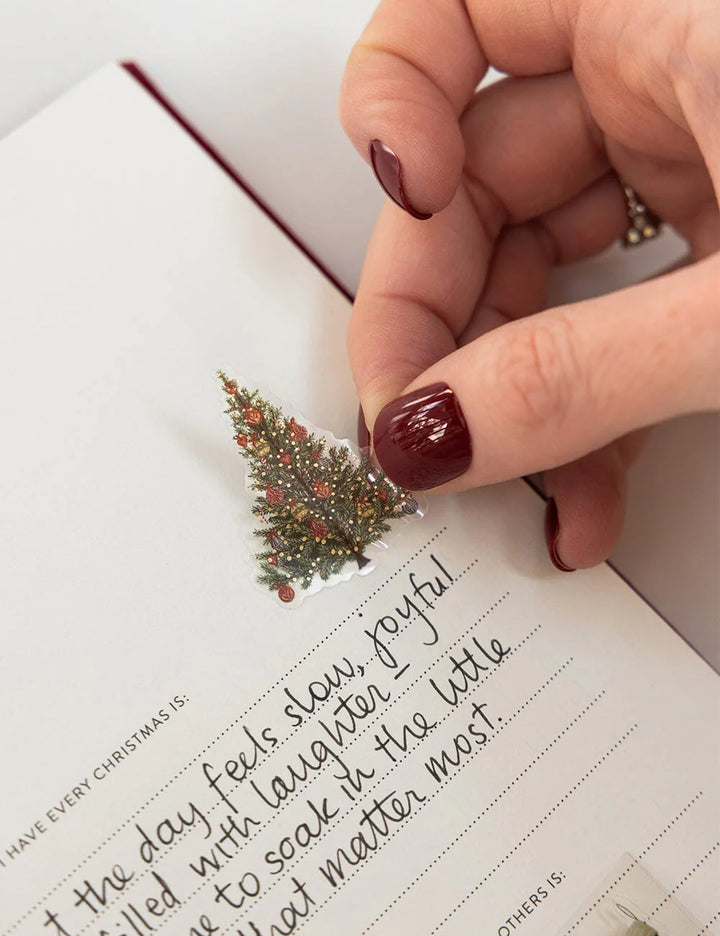 I HAVE EVERY CHRISTMAS IS:
the day feels slow, joyful
filled with laughter –
to soak in the little
that matter most.
OTHERS IS: